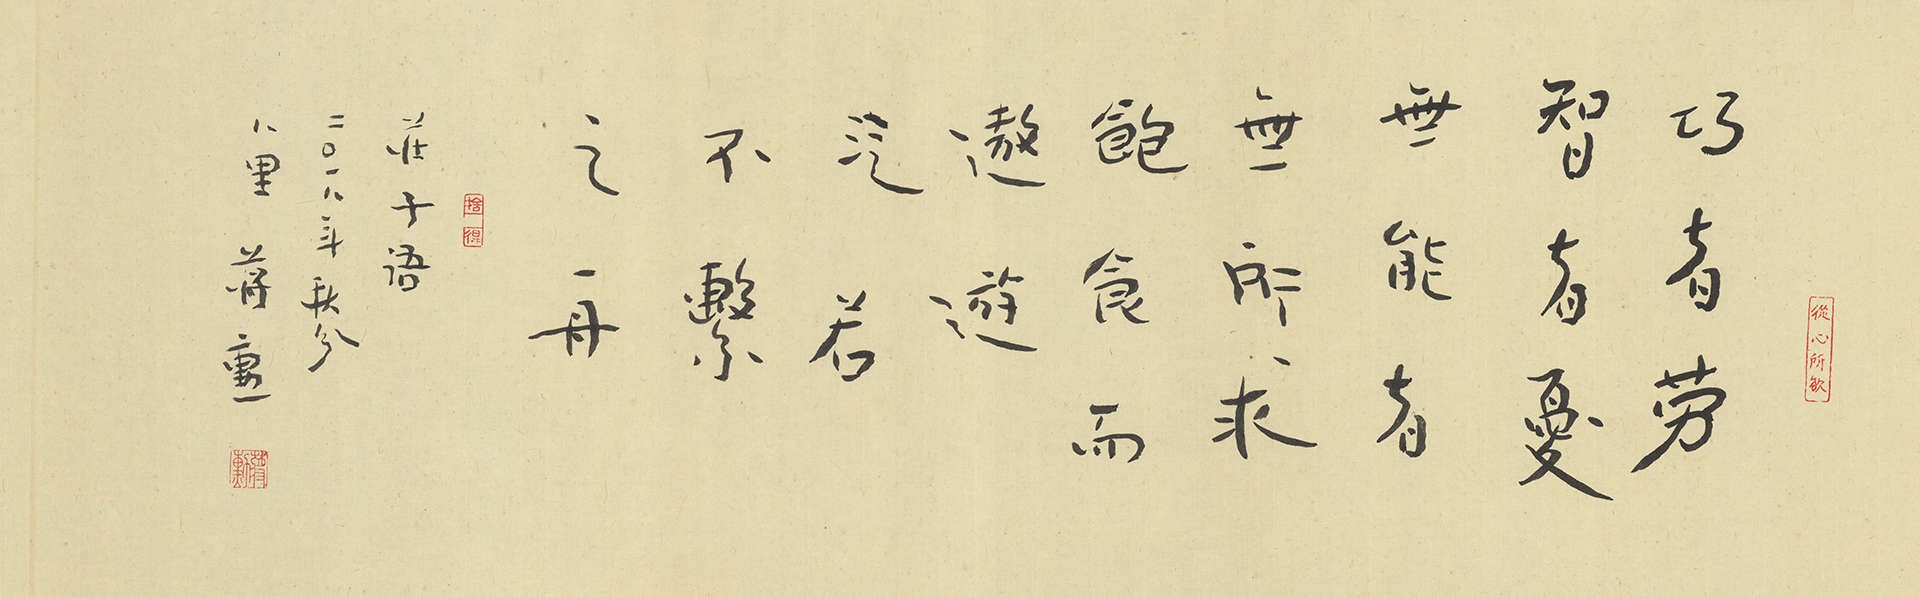 從心所欲
巧者劳
智者者憂
無能者
無所求
飽食而
遨遊
泛若
不繫
之舟
捨得
莊子语
二〇一八年秋分
八里 蒋勳
蔣勳